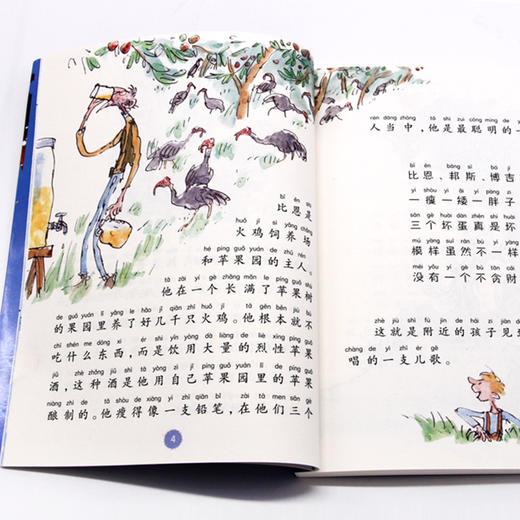 bǐ ēn shì
比恩是
huǒ jī sì yǎng chǎng
火鸡饲养场
hé píng guǒ yuán de zhǔ rén
和苹果园的主人。
tā zài yí gè zhǎng mǎn le píng guǒ shù
他在一个长满了苹果树
de guǒ yuán lǐ yǎng le hǎo jǐ qiān zhī huǒ jī tā gēn běn jiù bù
的果园里养了好几千只火鸡。他根本就不
chī shén me dōng xi ér shì yǐn yòng dà liàng de liè xìng píng guǒ
吃什么东西,而是饮用大量的烈性苹果
jiǔ zhè zhǒng jiǔ shì tā yòng zì jǐ píng guǒ yuán lǐ de píng guǒ
酒,这种酒是他用自己苹果园里的苹果
niàng zhì de tā shòu de xiàng yì zhī qiān bǐ zài tā men sān gè
酿制的。他瘦得像一支铅笔,在他们三个
4
rén dāng zhōng tā shì zuì cōng míng de yí
人当中,他是最聪明的一
bǐ ēn bāng sī bó jí
比恩、邦斯、博吉
yí shòu yì ǎi yí pàng zǐ
一瘦一矮一胖子
sān gè huài dàn zhēn shì huài
三个坏蛋真是坏
mú yàng suī rán bù yí yàng
模样虽然不一样
méi yǒu yí gè bù tān cái
没有一个不贪财
zhè jiù shì fù jìn de hái zi jiàn
这就是附近的孩子见
chàng de yì zhī ér gē
唱的一支儿歌。